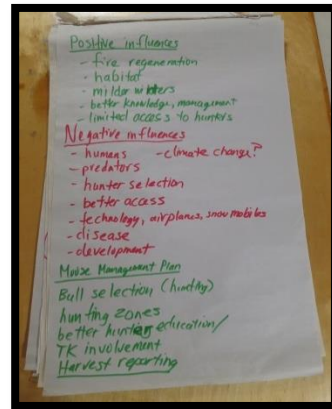 Positive influences
- fire regeneration
- habitat
- milder winters
- better knowledge, management
- limited access to hunters
Negative influences
- humans - climate change?
- predators
- hunter selection
- better access
- technology, airplanes, snowmobiles
- disease
- development
Moose Management Plan
Bull selection (hunting)
hunting zones
better hunter education/
TK involvement
Harvest reporting